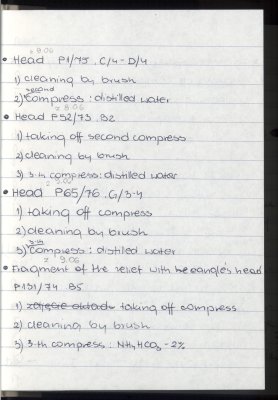 z 8.06
• Head P1/75 . C/4 - D/4
1) cleaning by brush
second
2) compress : distilled water
z 8.06
• Head P52/73 . B2
1) taking off second compress
2) cleaning by brush
3) 3-th compress : distilled water
z 9.06
• Head P65/76 . G/3-4
1) taking off compress
2) cleaning by brush
3-th
3) compress : distilled water
z 9.06
• Fragment of the relief with the eangle's head
P151/74 B5
1) zdjęcie okładu taking off compress
2) cleaning by brush
3) 3-th compress : NH4HCO3 - 2%